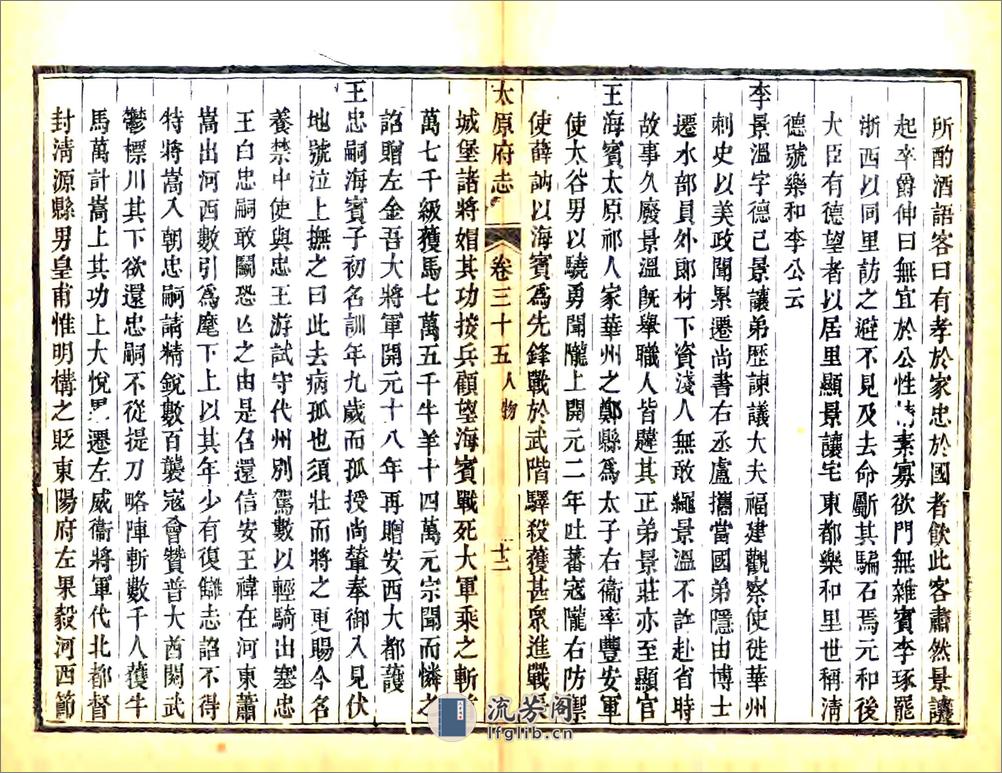 所酌酒語客曰有孝於家忠於國者飲此客肅然景讓
起卒爵伸曰無宜於公性素寡欲門無雜賓李琢罷
浙西以同里訪之避不見及去命斸其騙石焉元和後
大臣有德望者以居里顯景讓宅東都樂和里世稱淸
德號樂和李公云
李景溫字德己景讓弟歷諫議大夫福建觀察使徙華州
刺史以美政聞累遷尚書右丞盧攜當國弟隱由博士
遷水部員外郎材下資淺人無敢繩景溫不許赴省時
故事久廢景溫旣舉職人皆韙其正弟景莊亦至顯官
王海賓太原祁人家華州之鄭縣爲太子右衞率豐安軍
使大谷男以驍勇聞隴上開元二年吐蕃寇隴右防禦
使薛訥以海賓爲先鋒戰於武階驛殺獲甚眾進戰
太原府志
卷三十五
人物
十二
城堡諸將媢其功按兵顧望海賓戰死大軍乘之斬
萬七千級獲馬七萬五千牛羊十四萬元宗聞而憐之
詔贈左金吾大將軍開元十八年再贈安西大都護
王忠嗣海賓子初名訓年九歲而孤授尚輦奉御入見伏
地號泣上撫之曰此去病孤也須壯而將之更賜今名
養禁中使與忠王游試守代州別駕數以輕騎出塞忠
王白忠嗣敢鬬恐亾之由是召還信安王禕在河東蕭
嵩出河西數引爲麾下上以其年少有復讎志詔不得
特將嵩入朝忠嗣請精銳數百襲寇會贊普大酋閱武
鬱標川其下欲還忠嗣不從提刀略陣斬數千人獲牛
馬萬計嵩上其功上大悅累遷左威衞將軍代北都督
封淸源縣男皇甫惟明構之貶東陽府左果毅河西節
流芳阁
lfglib.cn